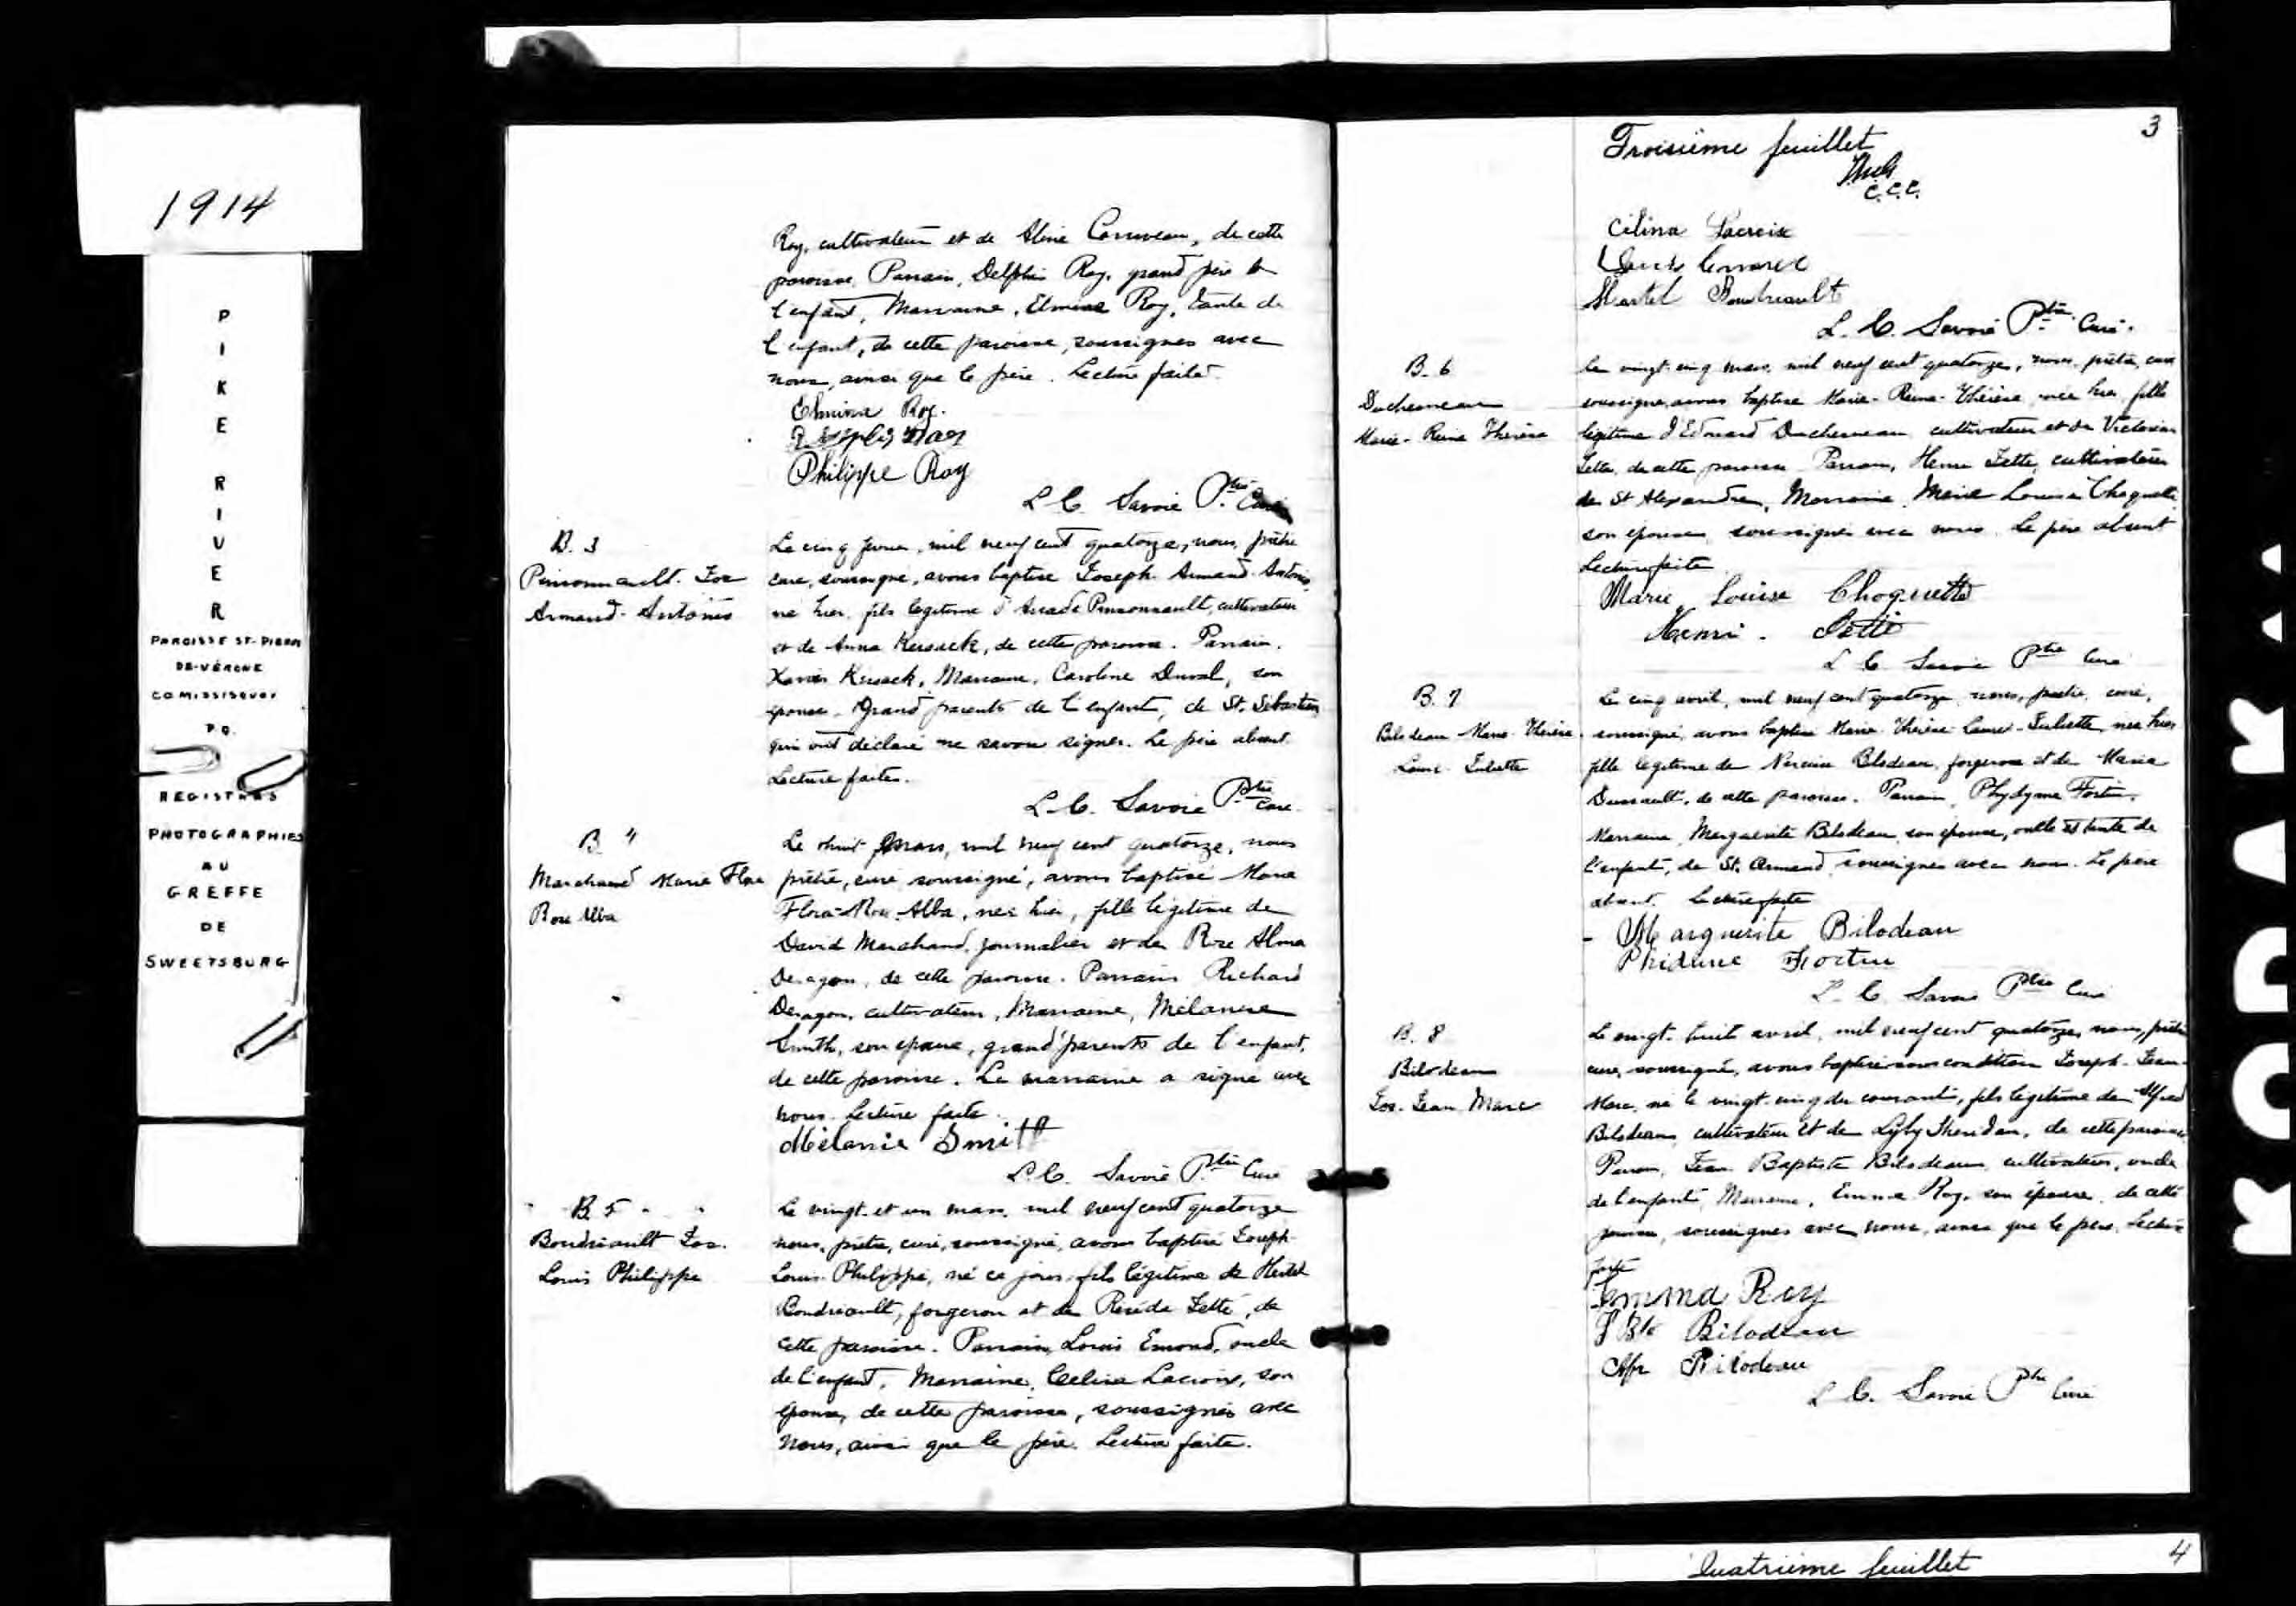 1914
PIKE RIVER
PAROISSE ST-PIERRE
DE-VÉRONE
CO MISSISQUOI
P.Q.
REGISTRES
PHOTOGRAPHIES
AU
GREFFE
DE
SWEETSBURG
Roy, cultivateur et de Aline Corriveau, de cette
paroisse. Parrain, Delphis Roy, grand père de
l'enfant, Marraine, Elmina Roy, tante de
l'enfant, de cette paroisse, soussignes avec
nous, ainsi que le père. Lecture faite.
Elmina Roy.
Delphis Roy
Philippe Roy
L. C. Savoie Ptre Curé
B. 3
Pinsonnault. Jos
Armand. Antonio
Le cinq fevrier, mil neuf cent quatorze, nous, prêtre
curé, soussigné, avons baptisé Joseph. Armand. Antonio,
né hier, fils legitime d' Pinsonnault, cultivateur
et de Anna Kessack, de cette paroisse. Parrain,
Xavier Kessack, Marraine, Caroline Duval, son
épouse. Grand parents de l'enfant, de St. Sébastien
qui ont déclaré ne savoir signer. Le père absent.
Lecture faite.
L. C. Savoie Ptre Curé
B. 4
Marchand Marie Flora
Rose Alba
Le huit Mars, mil neuf cent quatorze, nous
prêtre, curé soussigné, avons baptisé Marie
Flora-Rose-Alba, née hier, fille légitime de
David Marchand, journalier et de Rose Alma
Deragon, de cette paroisse. Parrain Richard
Deragon, cultivateur, Marraine, Mélanise
Smith, son epouse, grand'parents de l'enfant,
de cette paroisse. La marraine a signé avec
nous. Lecture faite.
Mélanie Smith
L. C. Savoie Ptre Curé
B. 5
Boudriault Jos.
Louis Philippe
Le vingt et un mars, mil neuf cent quatorze
nous, prêtre, curé, soussigné, avons baptisé Joseph
Louis-Philippe, né ce jour, fils légitime de Hertel
Boudriault, forgeron et de Jetté, de
cette paroisse. Parrain, Louis Emond, oncle
de l'enfant, Marraine, Celina Lacroix, son
épouse, de cette paroisse, soussignés avec
nous, ainsi que le père. Lecture faite.
3
Troisième feuillet
C.C.C.
Célina Lacroix
Hertel Boudriault
L. C. Savoie Ptre Curé.
B. 6
Duchesneau
Marie-Reine Thérèse
Le vingt-cinq mars, mil neuf cent quatorze, nous, prêtre, curé
soussigné, avons baptisé Marie-Reine-Thérèse née hier, fille
légitime d'Edouard Duchesneau, cultivateur et de Victorine
Jetté, de cette paroisse. Parrain, Henri Jetté, cultivateur
de St Alexandre, Marraine, Marie Louise Choquette
son épouse, soussignés avec nous. Le père absent
Lecture faite
Marie Louise Choquette
Henri. Jetté
L. C. Savoie Ptre Curé
B. 7
Bilodeau Marie Thérèse
Laure-Juliette
Le cinq avril, mil neuf cent quatorze, nous, prêtre, curé,
soussigné, avons baptisé Marie-Thérèse-Laure-Juliette, née hier
fille légitime de Narcisse Bilodeau, forgeron et de Maria
Dussault, de cette paroisse. Parrain, Phydyme Fortin,
Marraine, Marguerite Bilodeau, son épouse, oncle et tante de
l'enfant, de St. Armand, soussignés avec nous. Le père
absent. Lecture faite
Marguerite Bilodeau
Phidime Fortin
L. C. Savoie Ptre Curé
B. 8
Bilodeau
Jos. Jean Marc
Le vingt-huit avril, mil neuf cent quatorze, nous, prêtre
curé, soussigné, avons baptisé sous condition Joseph-Jean-
Marc, né le vingt-cinq du courant, fils légitime de Alfred
Bilodeau, cultivateur et de Lyly Sheridan, de cette paroisse
Parrain, Jean Baptiste Bilodeau, cultivateur, oncle
de l'enfant, Marraine, Emma Roy, son épouse, de cette
paroisse, soussignés avec nous, ainsi que le père. Lecture
faite
Emma Roy
J Bte Bilodeau
Alfr Bilodeau
L. C. Savoie Ptre Curé
Quatrième feuillet
4
KODAK